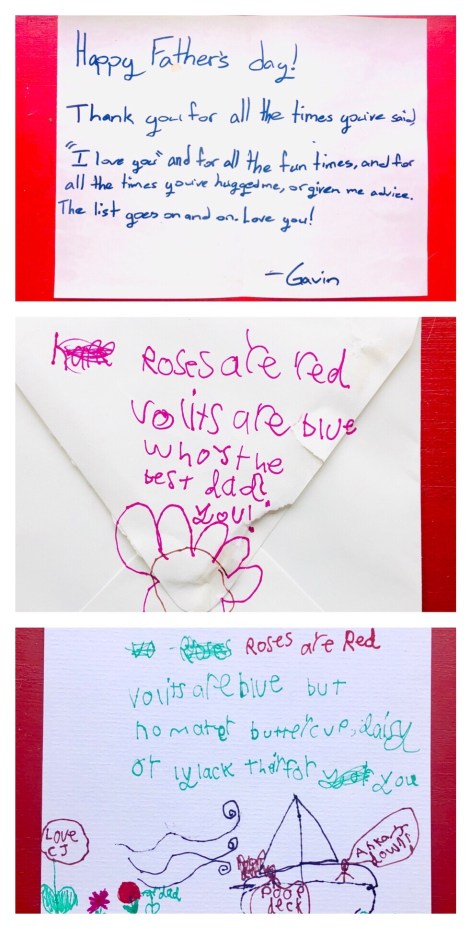 Happy Father's day!
Thank you for all the times you've said,
"I love you" and for all the fun times, and for
all the times you've hugged me, or given me advice.
The list goes on and on. Love you!
-Gavin
Roses are red
volits are blue
who's the
best dad?
You!
Roses are Red
volits are blue but
no mater buttercup, daisy
or lylack their for you
Love
CJ
Poop
deck